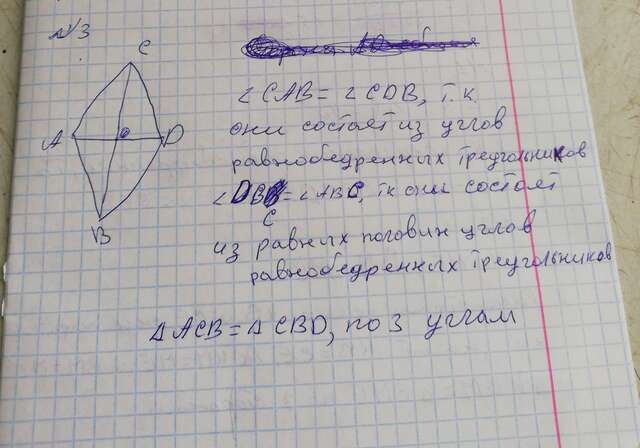 №3
C
A
D
B
∠CAB = ∠CDB, т.к.
они состоят из углов
равнобедренных треугольников
∠DBC = ∠ABC, тк они состоят
из равных половин углов
равнобедренных треугольников
Δ ACB = Δ CBD, по 3 углам